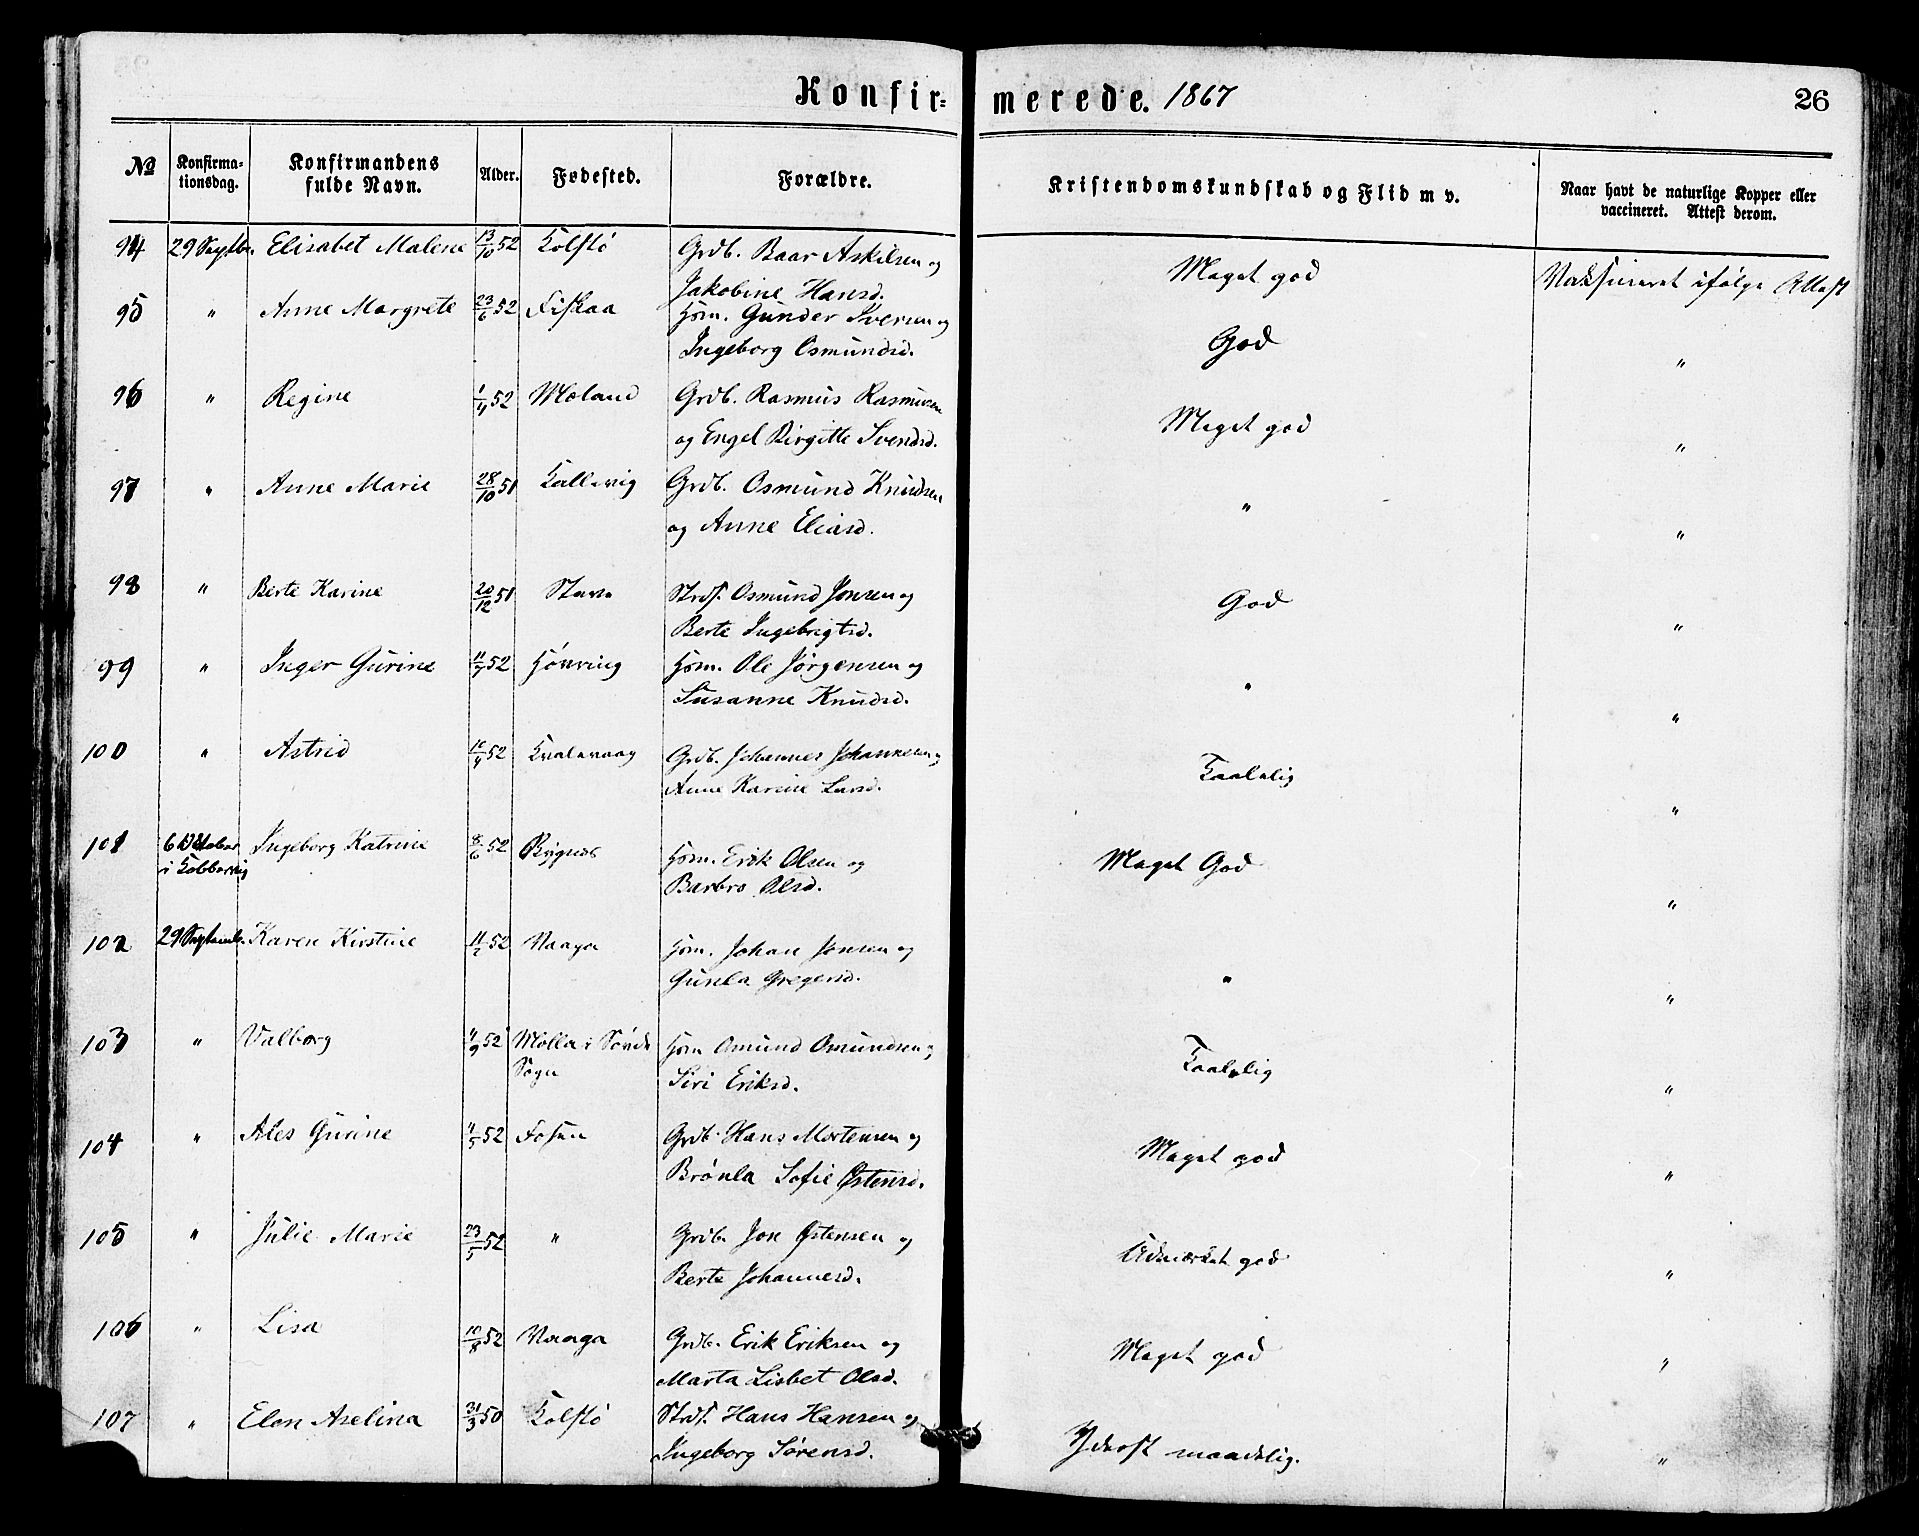 Konfir= merede. 1867 26
№ Konfirma-tionsdag. Konfirmandens fulde Navn. Alder. Fødested. Forældre. Kristendomskundskab og Flid m v. Naar havt de naturlige Kopper eller vaccineret. Attest derom.
94 29 Septbr. Elisabet Malene 13/10 52 Kolstø Grdb. Baar Askilsen og Meget god Vaksineret ifølge Attest
Jakobine Hansd.
95 " Anne Margrete 23/6 52 Fiskaa Hsm. Gunder Iversen og God "
Ingeborg Osmundsd.
96 " Regine 1/4 52 Mæland Grdb. Rasmus Rasmusen Meget god "
og Engel Birgitte Svendsd.
97 " Anne Marie 28/10 51 Kallevig Grdb. Osmund Knudsen " "
og Anne Eliasd.
98 " Berte Karine 20/12 51 Stava Strds. Osmund Jonsen og God "
Berte Ingebrigtsd.
99 " Inger Gurine 11/7 52 Høvring Hsm. Ole Jørgensen og " "
Susanne Knudsd.
100 " Astrid 10/4 52 Kvalavaag Grdb. Johannes Johannesen og Taalelig "
Anne Karine Larsd.
101 6 Oktober Ingeborg Katrine 8/6 52 Bygnes Hsm. Erik Olsen og Meget God "
i Kobbervig Barbro Olsd.
102 29 Septemb. Karen Kirstine 11/2 52 Vaaga Hsm. Johan Jonsen og " "
Gunla Gregersd.
103 " Valborg 4/9 52 Mølla i Søndr Hsm Omund Omundsen og Taalelig "
Sogn Siri Eriksd.
104 " Ales Gurine 4/5 52 Fosen Grdb. Hans Mortensen og Meget god "
Brønla Sofie Østensd.
105 " Julie Marie 23/5 52 " Grdb. Jon Østensen og Udmærket god "
Berte Johannesd.
106 " Lisa 10/8 52 Vaaga Grdb. Erik Eriksen og Meget god "
Marta Lisbet Olsd.
107 " Elen Aselina 31/3 50 Kolstø Strds. Hans Hansen og Yderst maadelig. "
Ingeborg Sørensd.